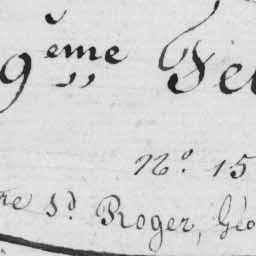 9ème Fe
No. 15
re Sd. Roger, Géo